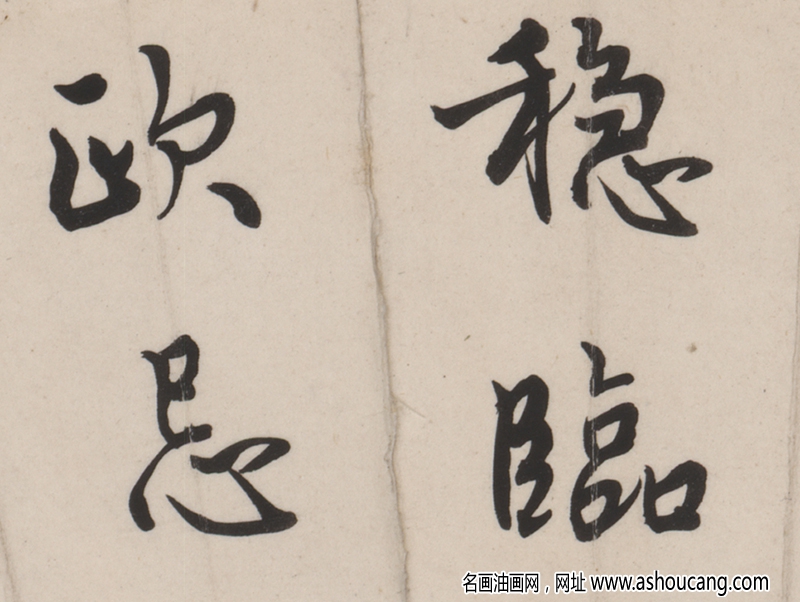 稳臨
歐忌
名画油画网，网址 www.ashoucang.com